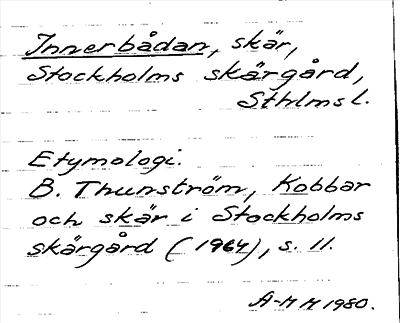 Innerbådan, skär,
Stockholms skärgård,
Sthlms l.
Etymologi.
B. Thunström, Kobbar
och skär i Stockholms
skärgård (1964), s. 11.
A-M M 1980.